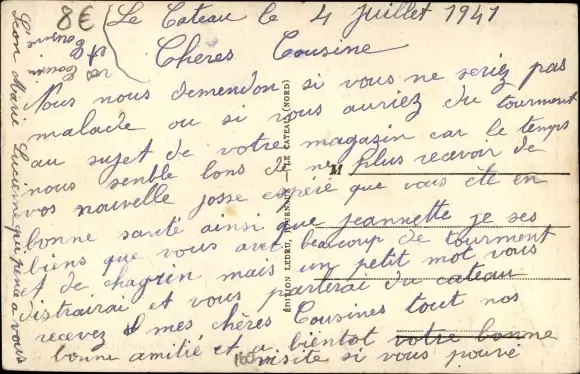 8€
Le Cateau le 4 Juillet 1941
Chères Cousine
Nous nous demendon si vous ne seriez pas
malade ou si vous auriez du tourment
au sujet de votre magasin car le temps
nous senble lons de ne plus recevoir de
vos nouvelle josse espéré que vous ete en
bonne santé ainsi que jeannette je ses
biens que vous avet beaucoup de tourment
et de chagrin mais un petit mot vous
distrairai et vous parlerai du cateau
recevez mes chères Cousines tout nos
bonne amitié et a bientot votre bonne
visite si vous pouvé
M
EDITION LEDRU, JOURNAUX — LE CATEAU (NORD)
Marie Lucienne qui pense a vous